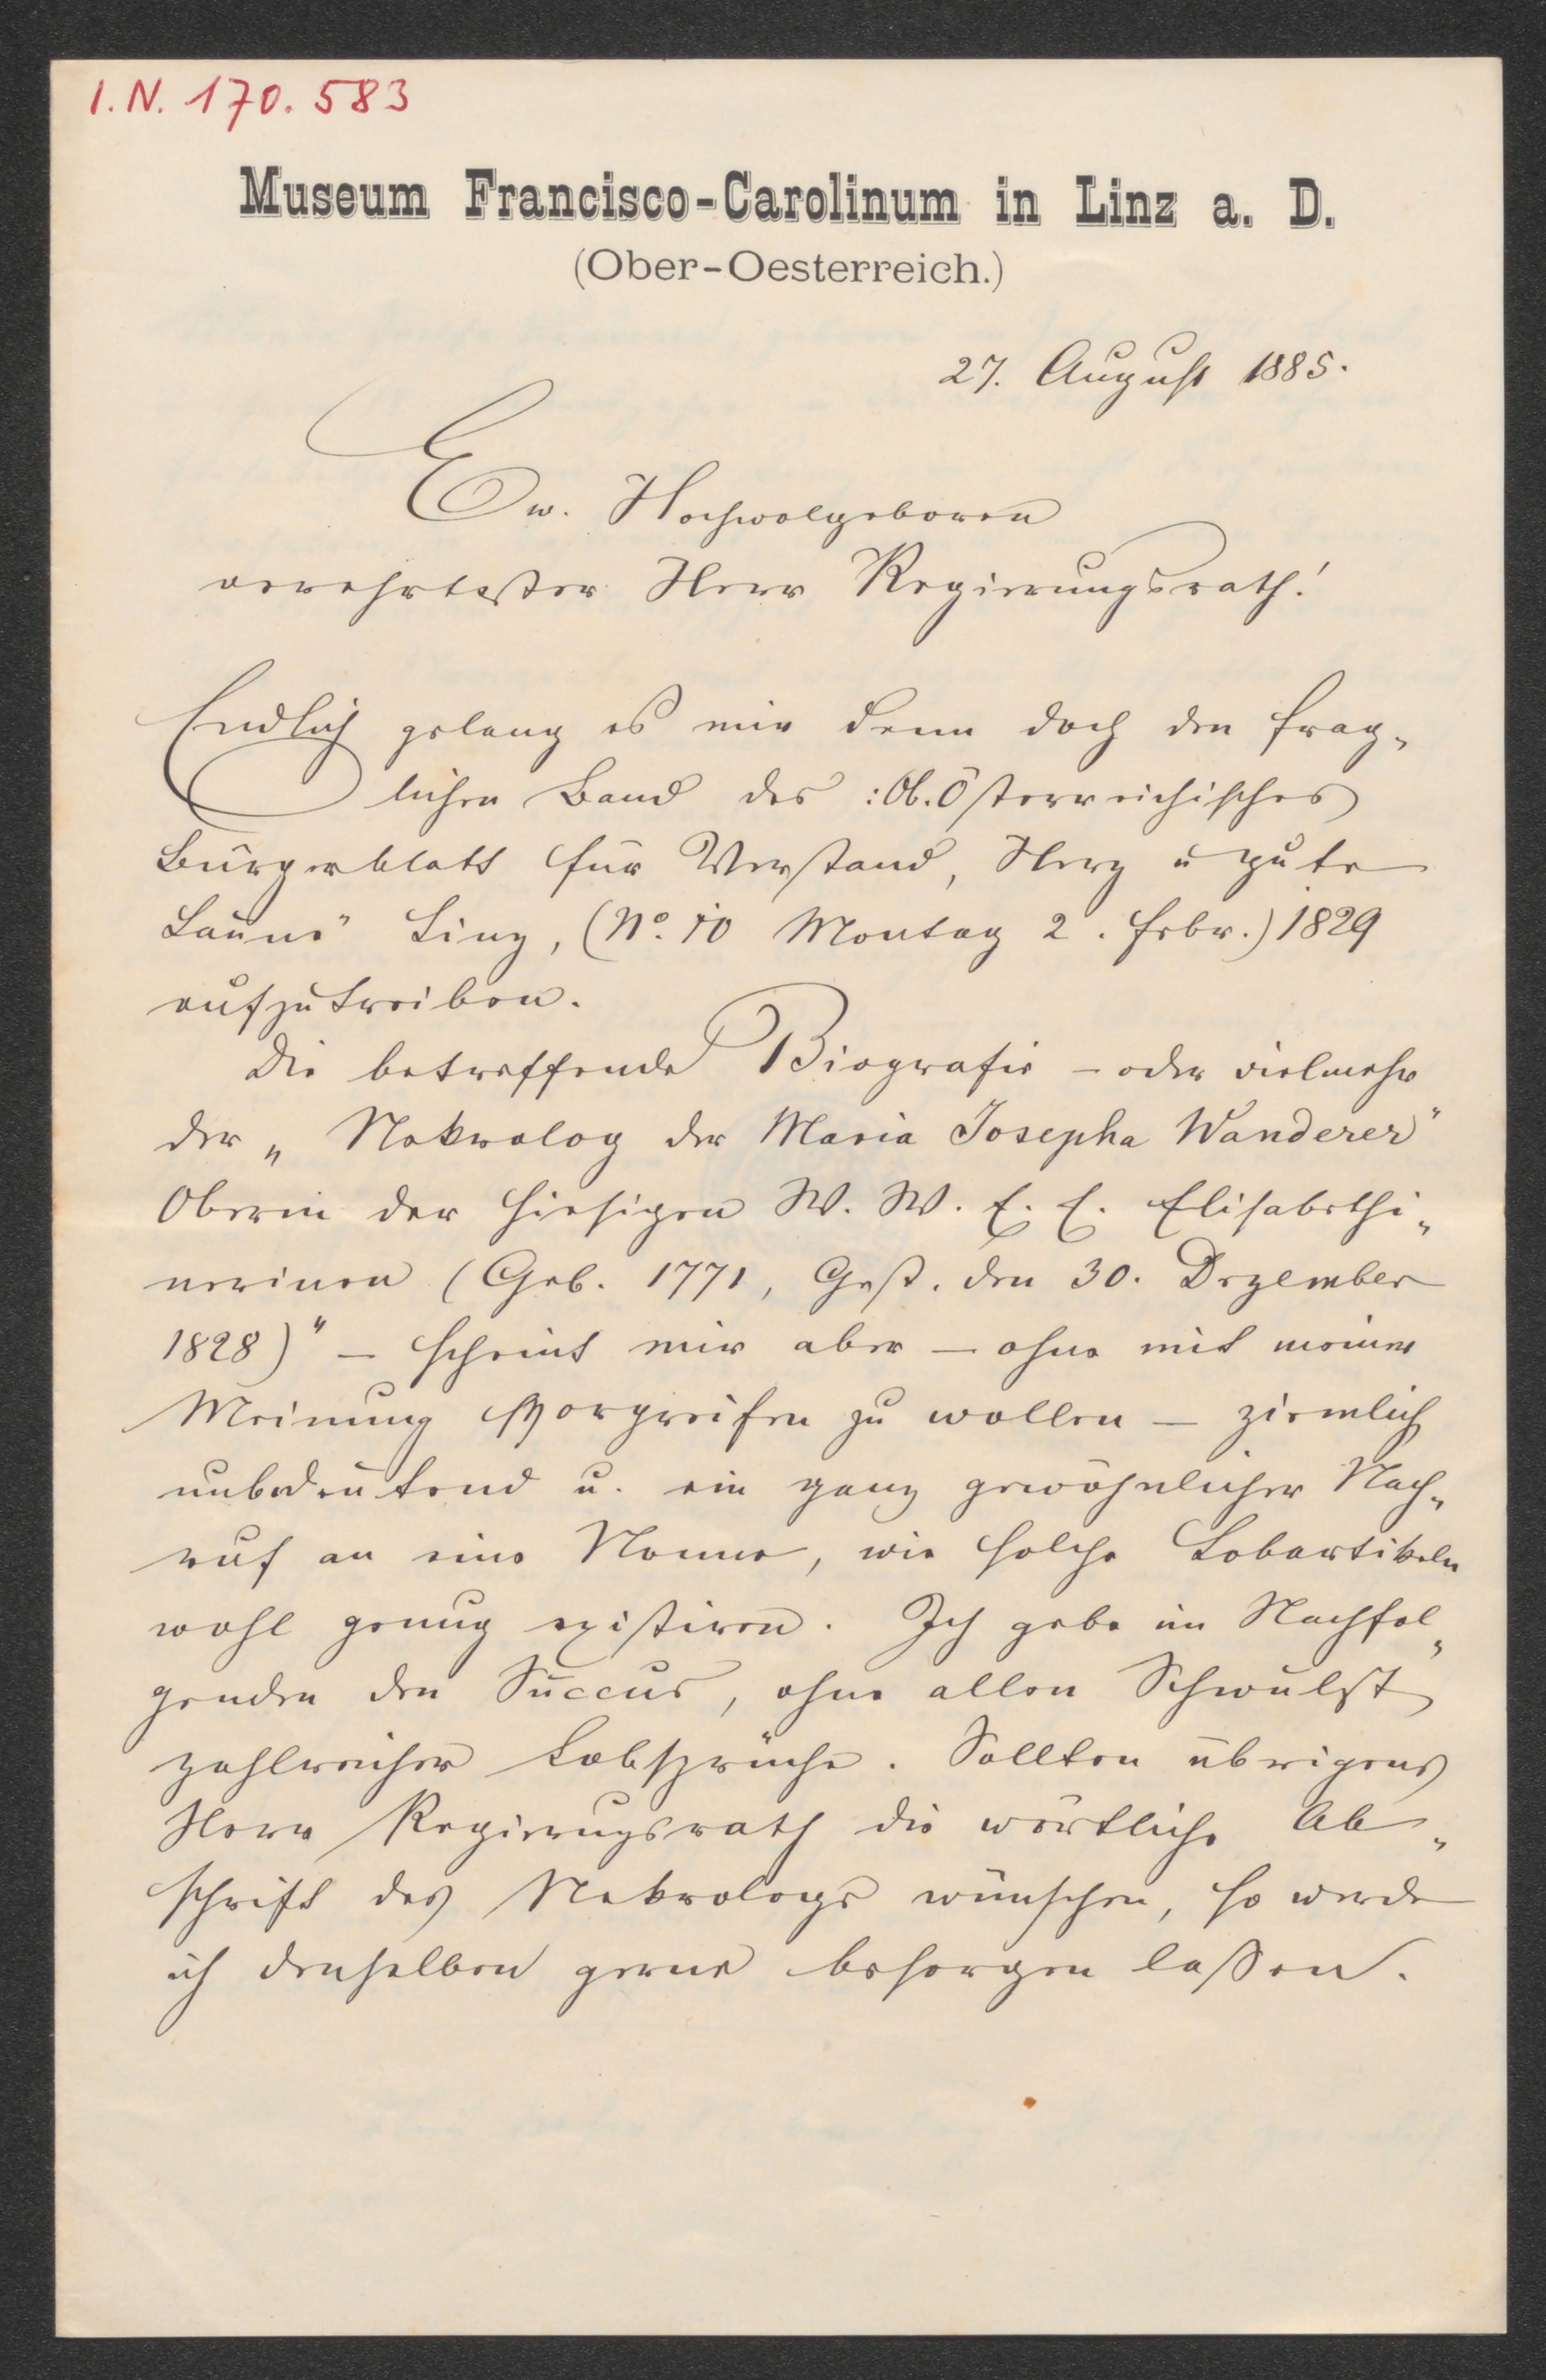 I.N. 170.583
Museum Francisco-Carolinum in Linz a. D.
(Ober-Oesterreich.)
27. August 1885.
Ew. Hochwolgeboren
verehrtester Herr Regierungsrath!
Endlich gelang es mir denn doch den frag-
lichen Band des :Ob. Österreichisches
Bürgerblatt für Verstand, Herz u gute
Laune" Linz, (No. 10 Montag 2. Febr.) 1829
aufzutreiben.
Die betreffende Biografie - oder vielmehr
der „Nekrolog der Maria Josepha Wanderer"
Oberin der hiesigen W. W. E. E. Elisabethi-
nerinen (Geb. 1771, Gest. den 30. Dezember
1828)" - scheint mir aber - ohne mit meiner
Meinung vorgreifen zu wollen - ziemlich
unbedeutend u. ein ganz gewöhnlicher Nach-
ruf an eine Nonne, wie solche Lobartikeln
wohl genug existiren. Ich gebe im Nachfol-
genden den Succus, ohne allen Schwulst
zahlreicher Lobsprüche. Sollten übrigens
Herr Regierungsrath die wörtliche Ab-
schrift des Nekrologs wünschen, so werde
ich denselben gerne besorgen laßen.